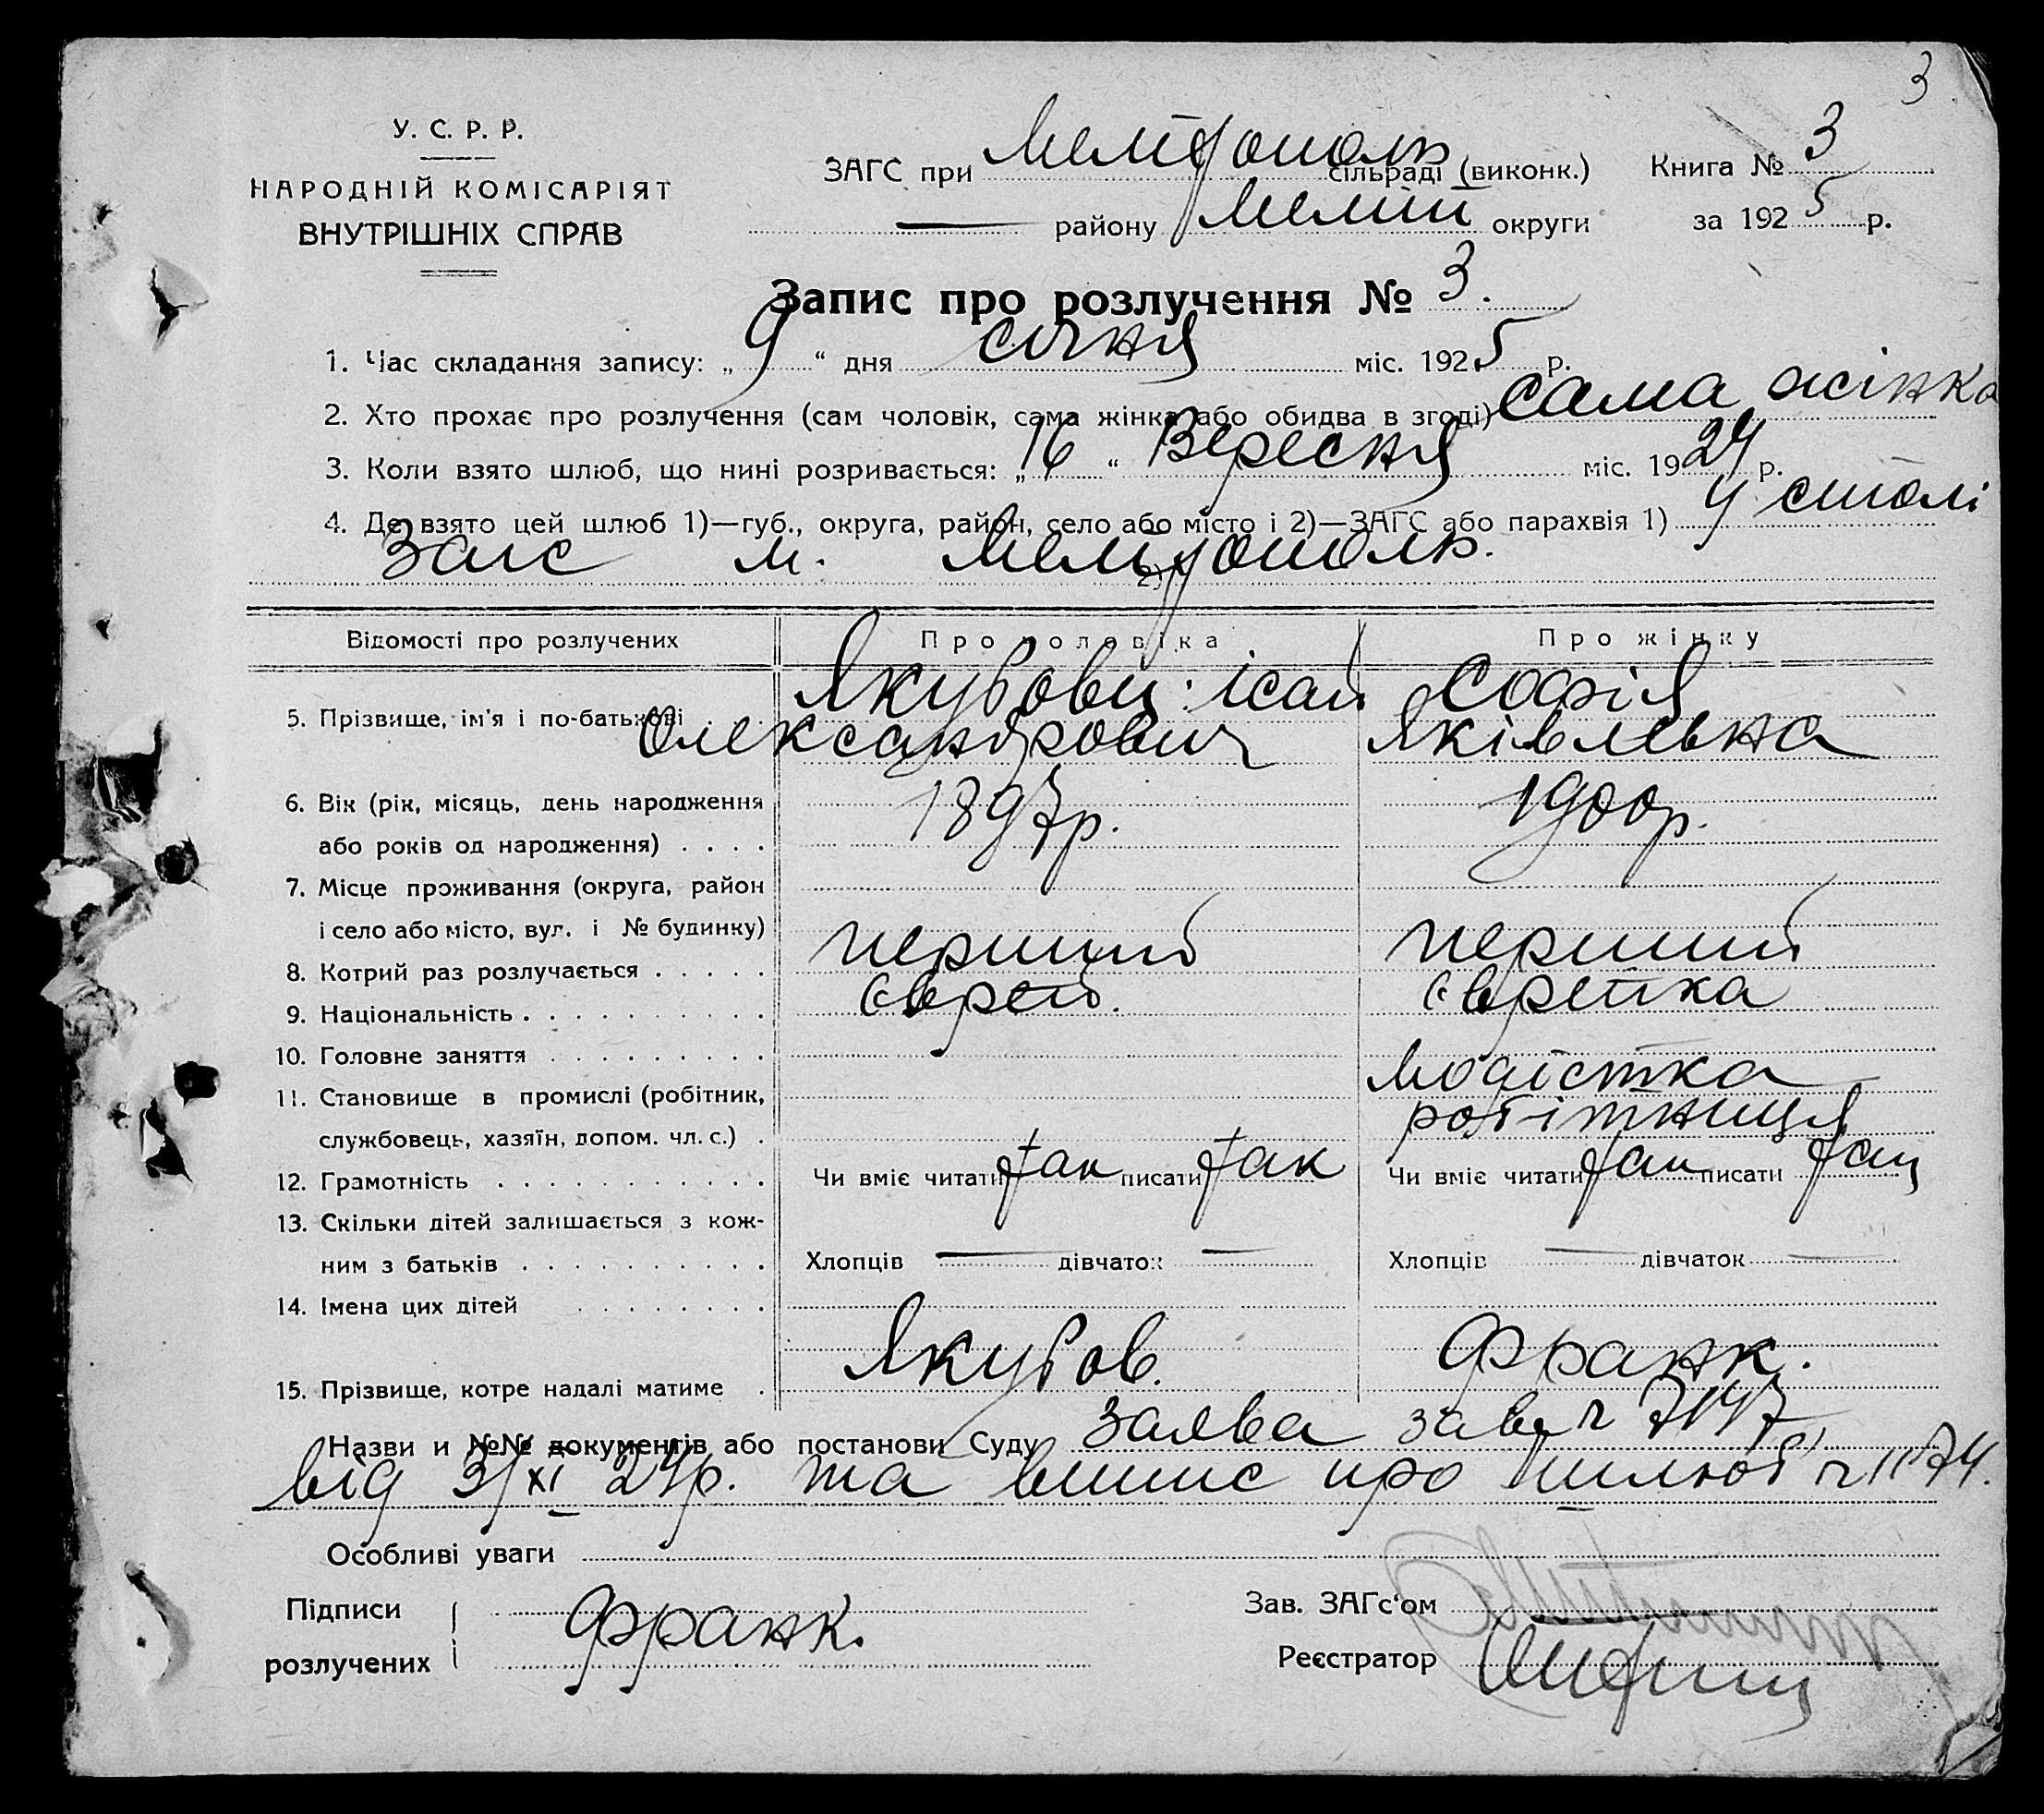 3
У. С. Р. Р.
НАРОДНІЙ КОМІСАРІЯТ
ВНУТРІШНІХ СПРАВ
ЗАГС при Мелітополь сільраді (виконк.)
— району Меліт округи
Книга № 3
за 1925 р.
Запис про розлучення № 3.
1. Час складання запису: „ 9 “ дня січня міс. 1925 р.
2. Хто прохає про розлучення (сам чоловік, сама жінка або обидва в згоді) сама жінка
3. Коли взято шлюб, що нині розривається: „ 16 “ Вересня міс. 1924 р.
4. Де взято цей шлюб 1)—губ., округа, район, село або місто і 2)—ЗАГС або парахвія 1) у столі
Загс м. Мелітополь. 2)
Відомості про розлучених Про чоловіка Про жінку
5. Прізвище, ім'я і по-батькові Якубови: Ісай Софія
Олександрович Яківлевна
6. Вік (рік, місяць, день народження 1897р. 1900р.
або років од народження)
7. Місце проживання (округа, район
і село або місто, вул. і № будинку)
8. Котрий раз розлучається перший перший
9. Національність єврей. єврейка
10. Головне заняття
11. Становище в промислі (робітник, модістка
службовець, хазяїн, допом. чл. с.) робітниця
12. Грамотність Чи вміє читати так писати так Чи вміє читати так писати так
13. Скільки дітей залишається з кож-
ним з батьків Хлопців — дівчаток — Хлопців — дівчаток —
14. Імена цих дітей
15. Прізвище, котре надалі матиме Якубов. Франк.
Назви и №№ документів або постанови Суду заява зав. ч 7147
від 3/XI 24р. та випис про шлюб ч 1174.
Особливі уваги
Підписи
розлучених
Франк.
Зав. ЗАГс'ом
Реєстратор